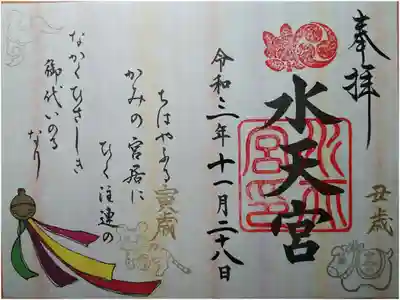 奉拝
水天宮
水天宮印
丑歳
令和三年十一月二十八日
寅歳
ちはやふる
かみの宮居に
ひく注連の
なかくひさしき
御代いのる
なり